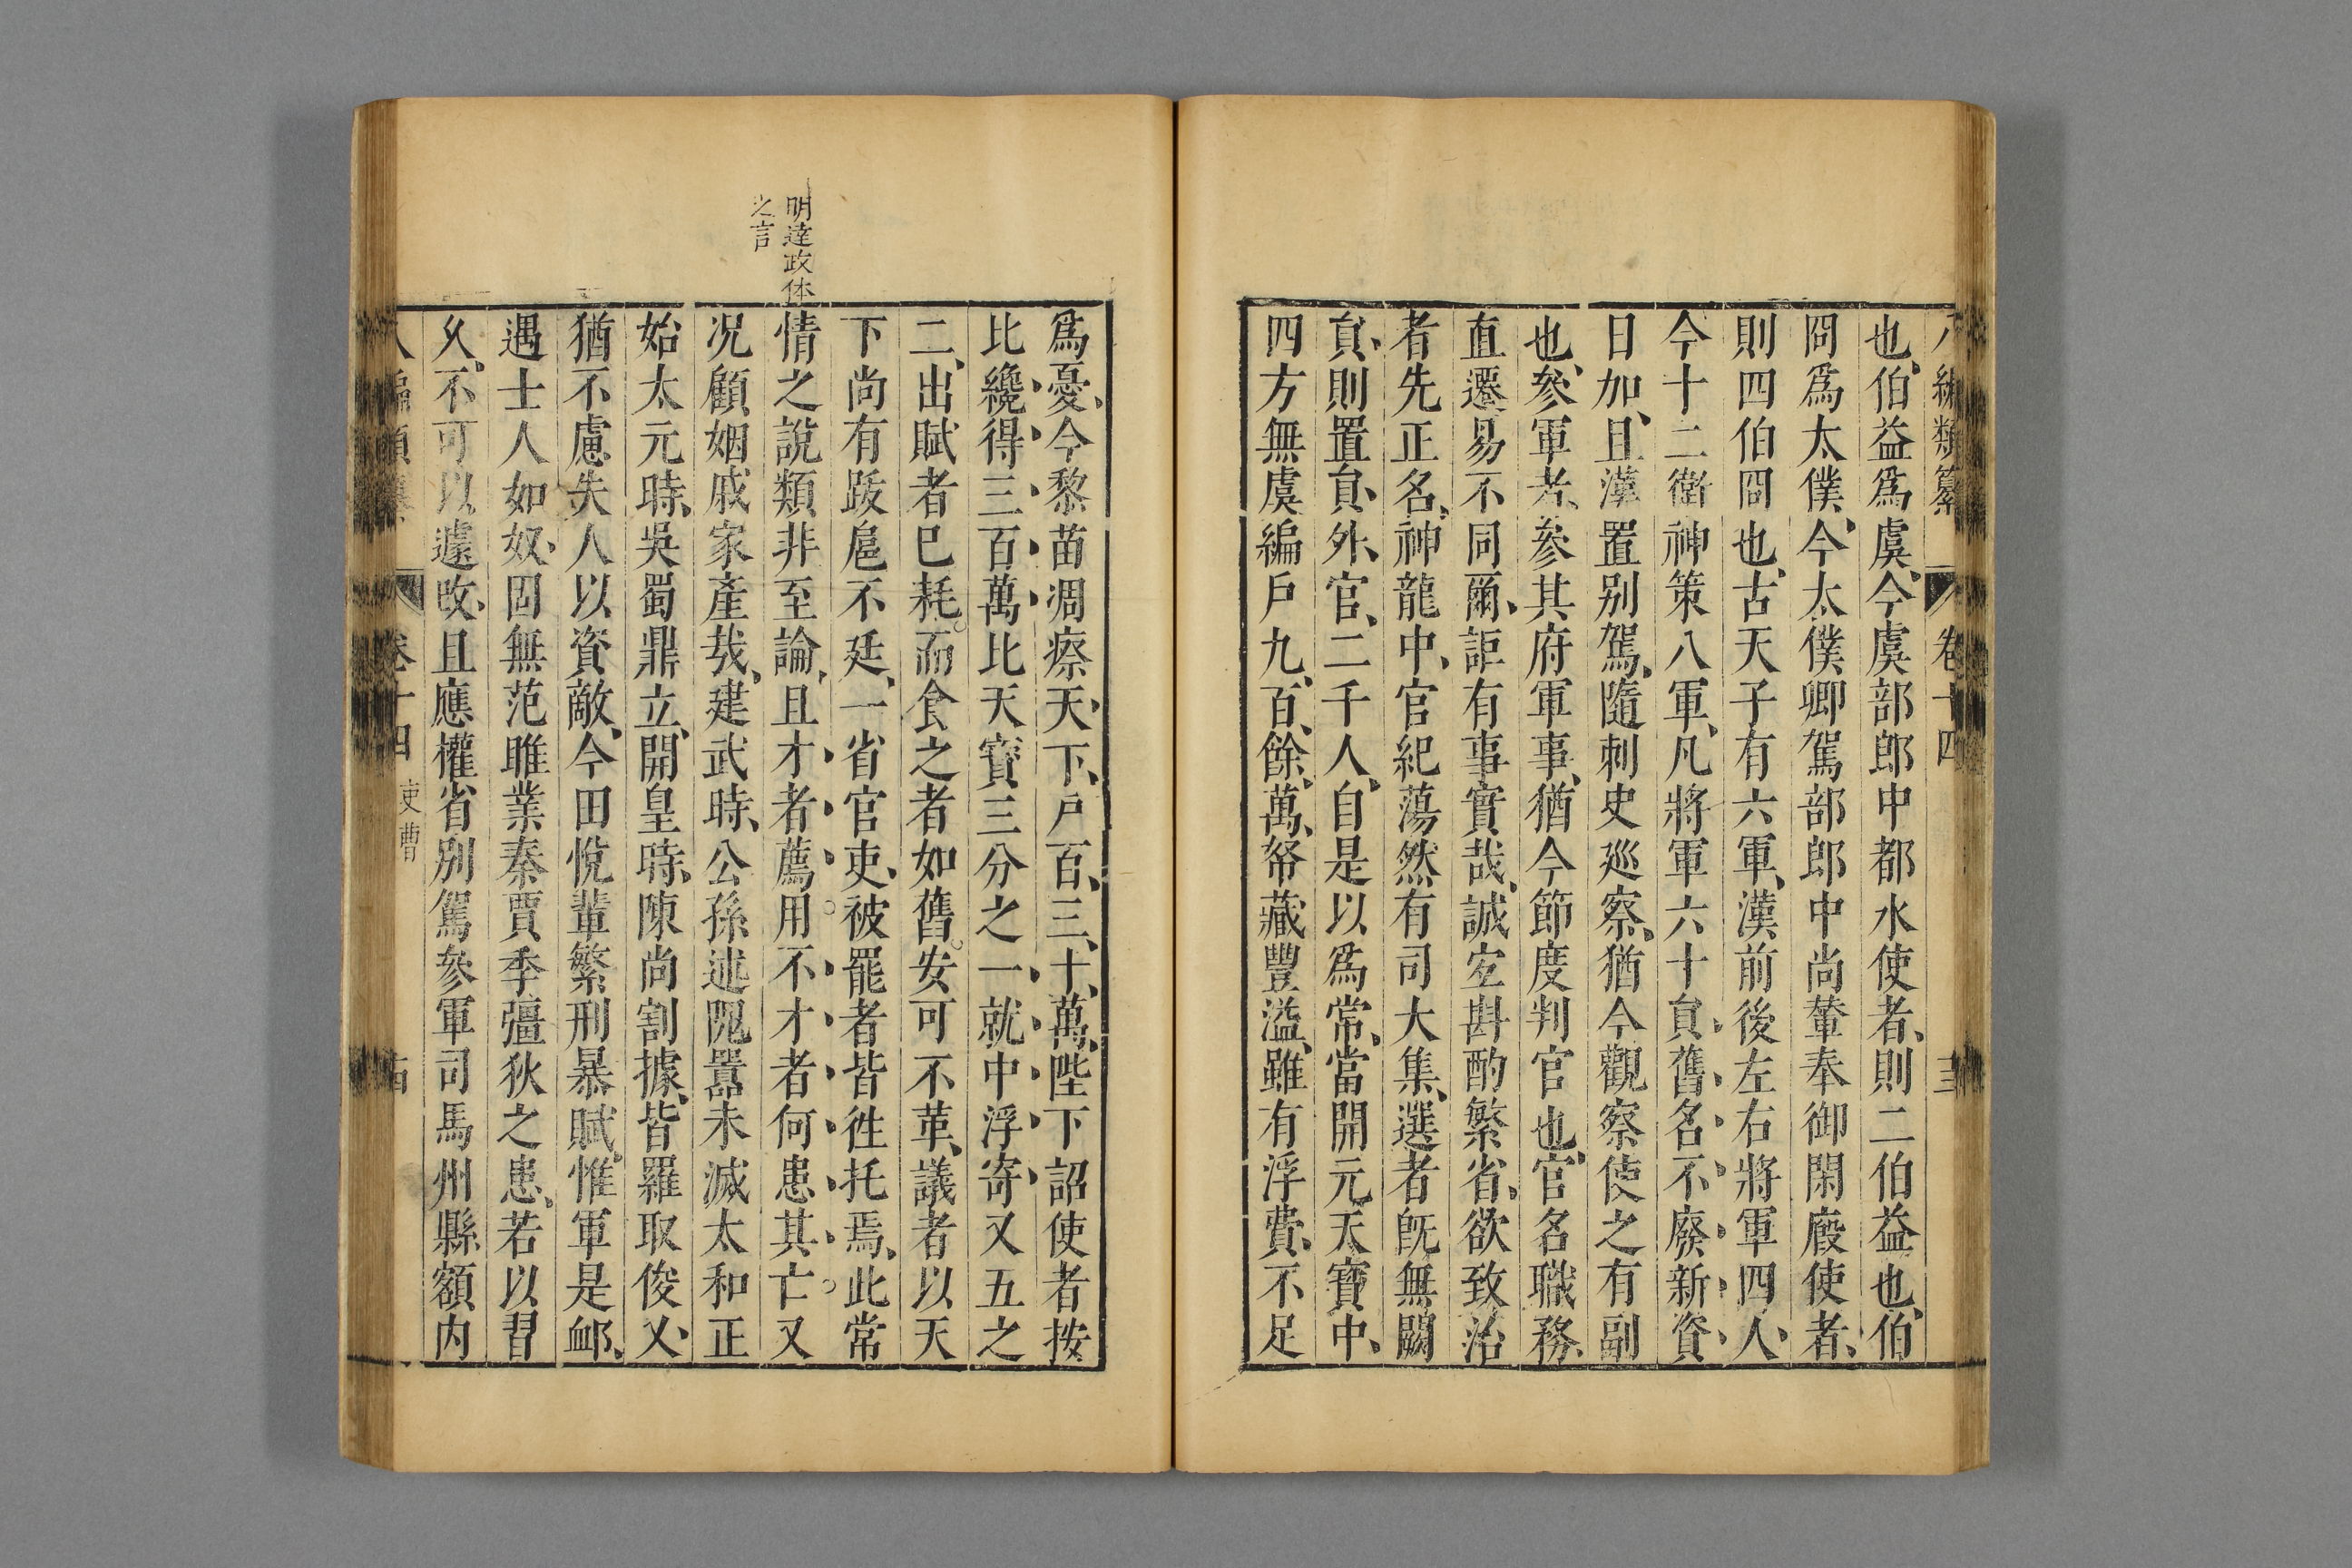 八編類纂 卷十四 十三
也伯益爲虞今虞部郎中都水使者則二伯益也伯
冏爲太僕今太僕卿駕部郎中尚輦奉御閑廐使者
則四伯冏也古天子有六軍漢前後左右將軍四人
今十二衛神策八軍凡將軍六十員舊名不廢新資
日加且漢置别駕隨刺史巡察猶今觀察使之有副
也參軍者參其府軍事猶今節度判官也官名職務
直遷易不同爾詎有事實哉誠宜斟酌繁省欲致治
者先正名神龍中官紀蕩然有司大集選者旣無闕
員則置員外官二千人自是以爲常當開元天寶中
四方無虞編戶九百餘萬帑藏豐溢雖有浮費不足
爲憂今黎苗凋瘵天下戶百三十萬陛下詔使者按
比纔得三百萬比天寶三分之一就中浮寄又五之
二出賦者已耗而食之者如舊安可不革議者以天
下尚有跋扈不廷一省官吏被罷者皆徃托焉此常
情之說類非至論且才者薦用不才者何患其亡又
况顧姻戚家產哉建武時公孫述隗囂未滅太和正
始太元時吳蜀鼎立開皇時陳尚割據皆羅取俊乂
猶不慮失人以資敵今田悅輩繁刑暴賦惟軍是衈
遇士人如奴固無范雎業秦賈季彊狄之患若以習
久不可以遽改且應權省别駕參軍司馬州縣額内
八編類纂 卷十四 吏曹 十四
明達政体
之言